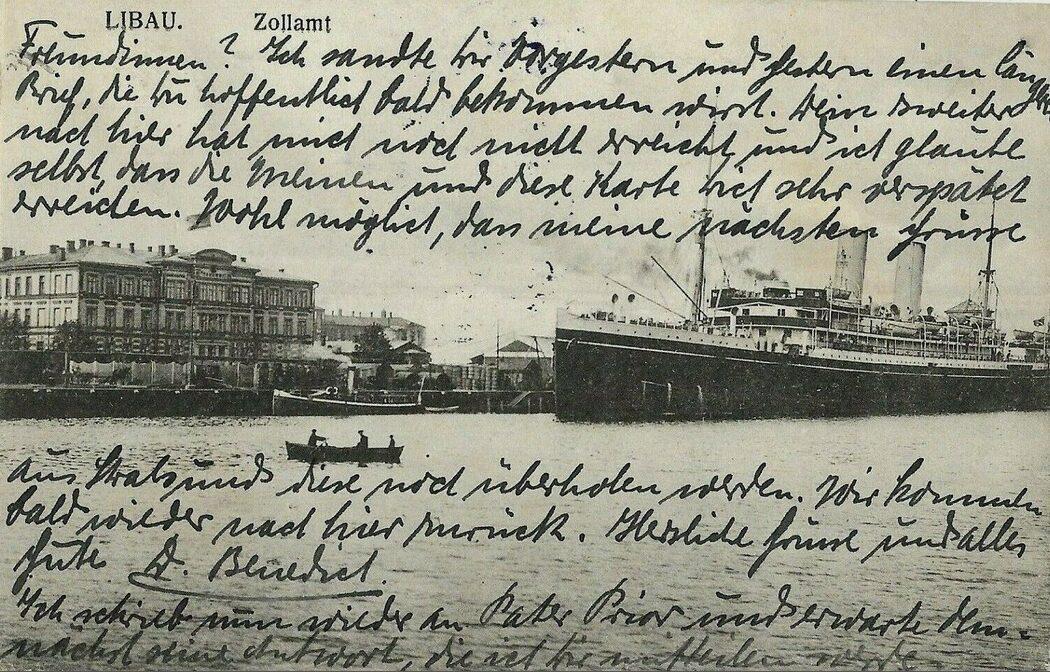 LIBAU. Zollamt
Freundinnen? Ich sandte Dir vorgestern und gestern einen längeren
Brief, die Du hoffentlich bald bekommen wirst. Dein zweiter
nach hier hat mich noch nicht erreicht und ich glaube
selbst, dass die Meinen und diese Karte Dich sehr verspätet
erreichen. Wohl möglich, dass meine nächsten Grüsse
aus Stralsund diese noch überholen werden. Wir kommen
bald wieder nach hier zurück. Herzliche Grüsse und alles
Gute D. Benedict.
Ich schrieb nun wieder an Pater Prior und erwarte dem-
nächst seine Antwort, die ich Dir mitteilen werde